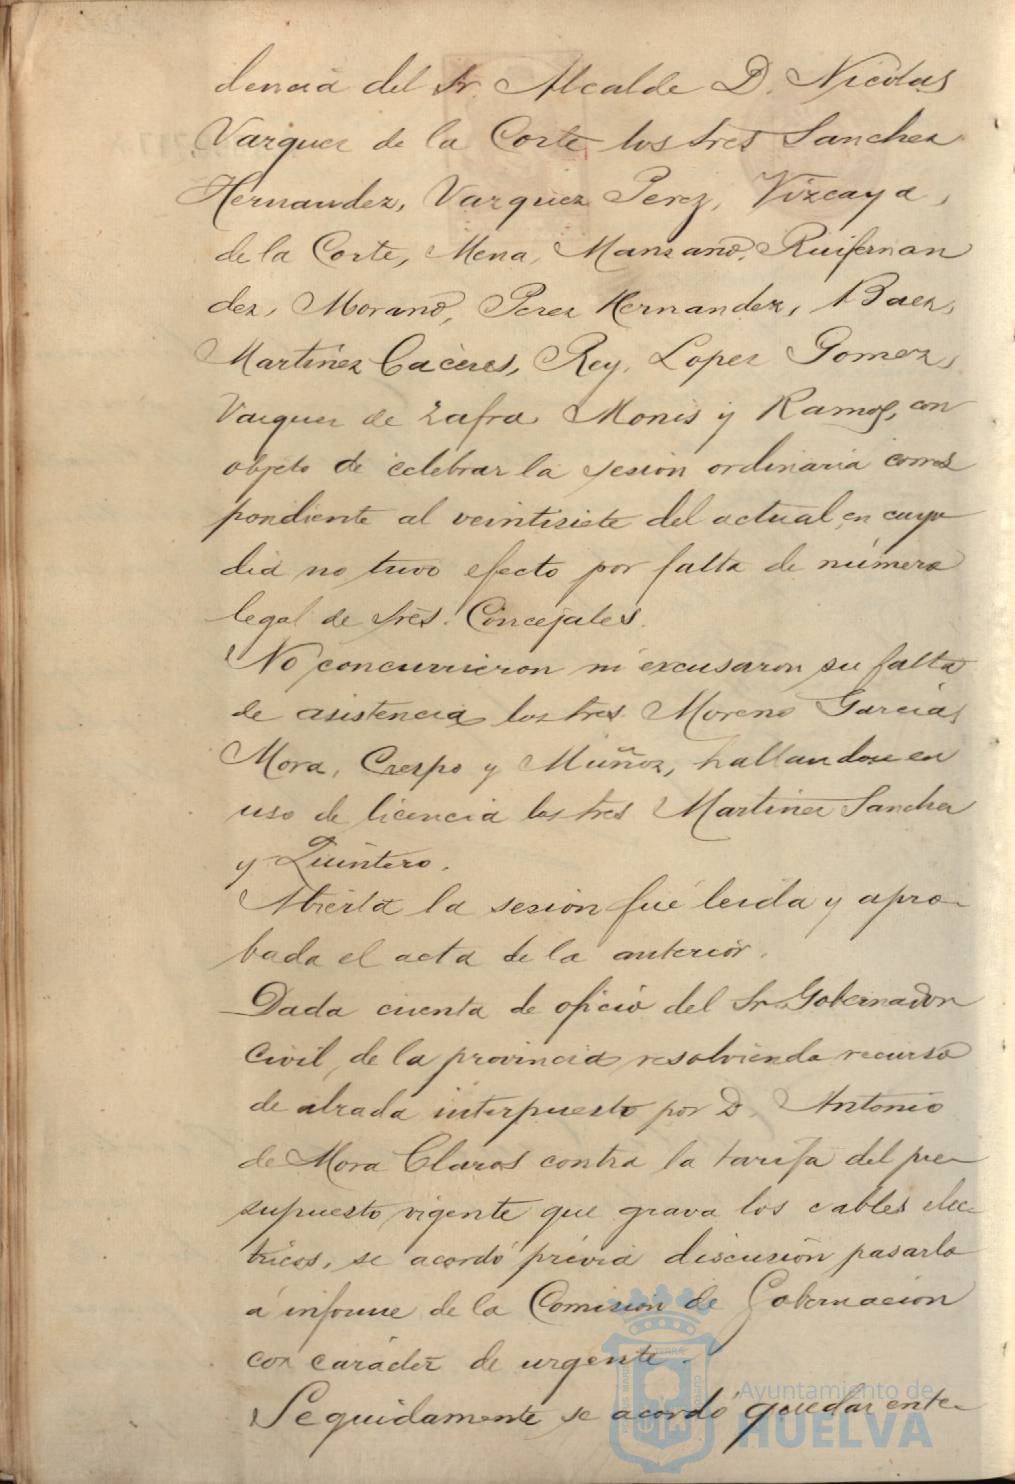 dencia del Sr. Alcalde D. Nicolas
Vazquez de la Corte los Sres Sanchez
Hernandez, Vazquez Perez, Vizcaya,
de la Corte, Mena, Manzano, Ruifernan
dez, Morano, Perez Hernandez, Baez,
Martinez Caceres, Rey, Lopez Gomez,
Vazquez de Zafra Monis y Ramos, con
objeto de celebrar la sesion ordinaria corres
pondiente al veintisiete del actual, en cuyo
dia no tuvo efecto por falta de número
legal de Sres. Concejales.
No concurrieron ni excusaron su falta
de asistencia los Sres. Moreno Garcia,
Mora, Crespo y Muñoz, hallandose en
uso de licencia los Sres Martinez Sanchez
y Quintero.
Abierta la sesion fué leida y apro-
bada el acta de la anterior.
Dada cuenta de oficio del Sr. Gobernador
Civil, de la provincia resolviendo recurso
de alzada interpuesto por D. Antonio
de Mora Claros contra la tarifa del pre-
supuesto vigente que grava los cables eléc-
tricos, se acordó prévia discusión pasarlo
á informe de la Comision de Gobernacion
con carácter de urgente.
Seguidamente se acordó quedar ente-
Ayuntamiento de
HUELVA